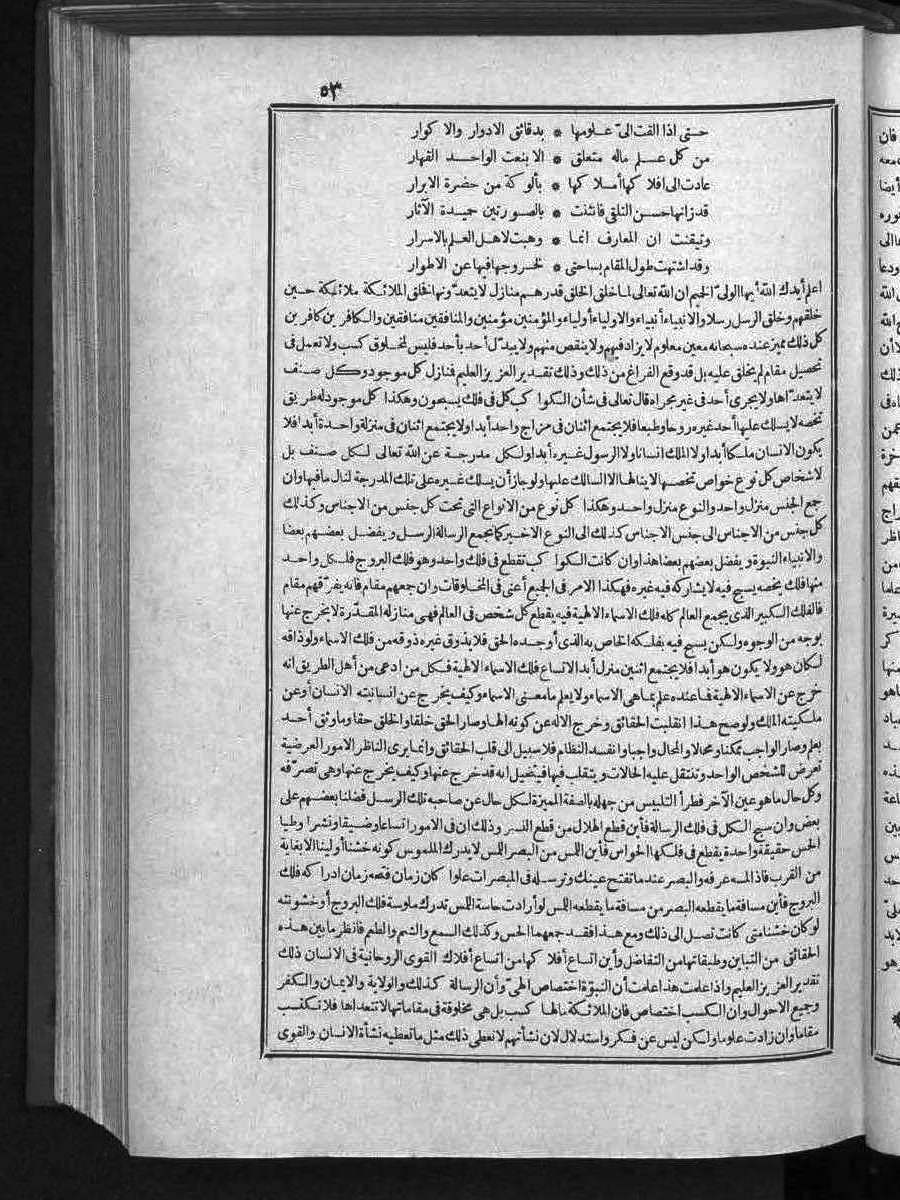 ٥٣
حتى اذا القت الىّ علومها * بدقائق الادوار والاكوار
من كل علم ماله متعلق * الا بنعت الواحد القهار
عادت الى افلاكها أملاكها * بألوكة من حضرة الابرار
قد زانها حسن التلقى فانثنت * بالصورتين حميدة الآثار
وتيقنت ان المعارف انما * وهبت لاهل العلم بالاسرار
وقد اشتهت طول المقام بساحتى * لخروجها فيها عن الاطوار
اعلم أيدك الله أيها الولىّ الحميم ان الله تعالى لما خلق الخلق قدرهم منازل لا يتعدّونها فخلق الملائكة ملائكة حين
خلقهم وخلق الرسل رسلا والانبياء أنبياء والاولياء أولياء والمؤمنين مؤمنين والمنافقين منافقين والكافرين كافرين
كل ذلك مميز عنده سبحانه معين معلوم لا يزاد فيهم ولا ينقص منهم ولا يبدّل أحد بأحد فليس لمخلوق كسب ولا تعمل فى
تحصيل مقام لم يخلق عليه بل قد وقع الفراغ من ذلك وذلك تقدير العزيز العليم فمنازل كل موجود وكل صنف
لا يتعدّاها ولا يجرى أحد فى غير مجراه قال تعالى فى شأن الكواكب كل فى فلك يسبحون وهكذا كل موجود له طريق
تخصه لا يسلك عليها أحد غيره روحا وطبعا فلا يجتمع اثنان فى مزاج واحد أبدا ولا يجتمع اثنان فى منزلة واحدة أبدا فلا
يكون الانسان ملكا أبدا ولا الملك انسانا ولا الرسول غيره أبدا ولكل مدرجة عن الله تعالى لكل صنف بل
لاشخاص كل نوع خواص تخصها لا ينالها الا السالك عليها ولو جاز أن يسلك غيره على تلك المدرجة لنال ما فيها وان
جمع الجنس منزل واحد والنوع منزل واحد وهكذا كل نوع من الانواع التى تحت كل جنس من الاجناس وكذلك
كل جنس من الاجناس الى جنس الاجناس كذلك الى النوع الاخير كما تجمع الرسالة الرسل ويفضل بعضهم بعضا
والانبياء النبوة ويفضل بعضهم بعضا هذا وان كانت الكواكب تقطع فى فلك واحد وهو فلك البروج فلكل واحد
منها فلك يخصه يسبح فيه لا يشاركه فيه غيره فهكذا الامر فى الجميع أعنى فى المخلوقات وان جمعهم مقام فانه يفرّقهم مقام
فالفلك الكبير الذى يجمع العالم كله فلك الاسماء الالهية فيه يقطع كل شخص فى العالم فهى منازله المقدّرة لا يخرج عنها
بوجه من الوجوه ولكن يسبح فيه بفلكه الخاص به الذى أوجده الحق فلا يذوق غيره ذوقه من فلك الاسماء ولو ذاقه
لكان هو ولا يكون هو أبدا فلا يجتمع اثنين منزل أبدا لاتساع فلك الاسماء الالهية فكل من ادعى من أهل الطريق انه
خرج عن الاسماء الالهية فما عنده علم بما هى الاسماء ولا يعلم ما معنى الاسماء وكيف يخرج عن انسانيته الانسان أو عن
ملكيته الملك ولو صح هذا انقلبت الحقائق وخرج الاله عن كونه الها وصار الحق خلقا والخلق حقا وما وثق أحد
بعلم وصار الواجب ممكنا ومحالا والمحال واجبا وانفسد النظام فلا سبيل الى قلب الحقائق وانما يرى الناظر الامور العرضية
تعرض للشخص الواحد وتنتقل عليه الحالات ويتقلب فيها فيتخيل انه قد خرج عنها وكيف يخرج عنها وهى تصرّفه
وكل حال ما هو عين الآخر فطرأ التلبيس من جهله بالصفة المميزة لكل حال عن صاحبه تلك الرسل فضلنا بعضهم على
بعض وان سبح الكل فى فلك الرسالة فأين قطع الهلال من قطع النسر وذلك ان فى الامور اتساعا وضيقا ونشرا وطيا
الحس حقيقة واحدة يقطع فى فلكها الحواس فأين اللمس من البصر اللمس لا يدرك الملموس كونه خشنا أو لينا الا بغاية
من القرب فاذا لمسه عرفه والبصر عندما تفتح عينك وترسله فى المبصرات علوا كان زمان فتحه زمان ادراكه فلك
البروج فأين مسافة ما يقطعه البصر من مسافة ما يقطعه اللمس لو أرادت حاسة اللمس تدرك ملوسة فلك البروج أو خشونته
لو كان خشنا متى كانت تصل الى ذلك ومع هذا فقد جمعهما الحس وكذلك السمع والشم والطعم فانظر ما بين هذه
الحقائق من التباين وطبقاتها من التفاضل وأين اتساع أفلاكها من اتساع أفلاك القوى الروحانية فى الانسان ذلك
تقدير العزيز العليم واذا علمت هذا علمت أن النبوّة اختصاص الهىّ وأن الرسالة كذلك والولاية والايمان والكفر
وجميع الاحوال وان الكسب اختصاص فان الملائكة مالها كسب بل هى مخلوقة فى مقاماتها لا تتعداها فلا تكتسب
مقاما وان زادت علوما ولكن ليس عن فكر واستدلال لان نشأتهم لا تعطى ذلك مثل ما تعطيه نشأة الانسان والقوى